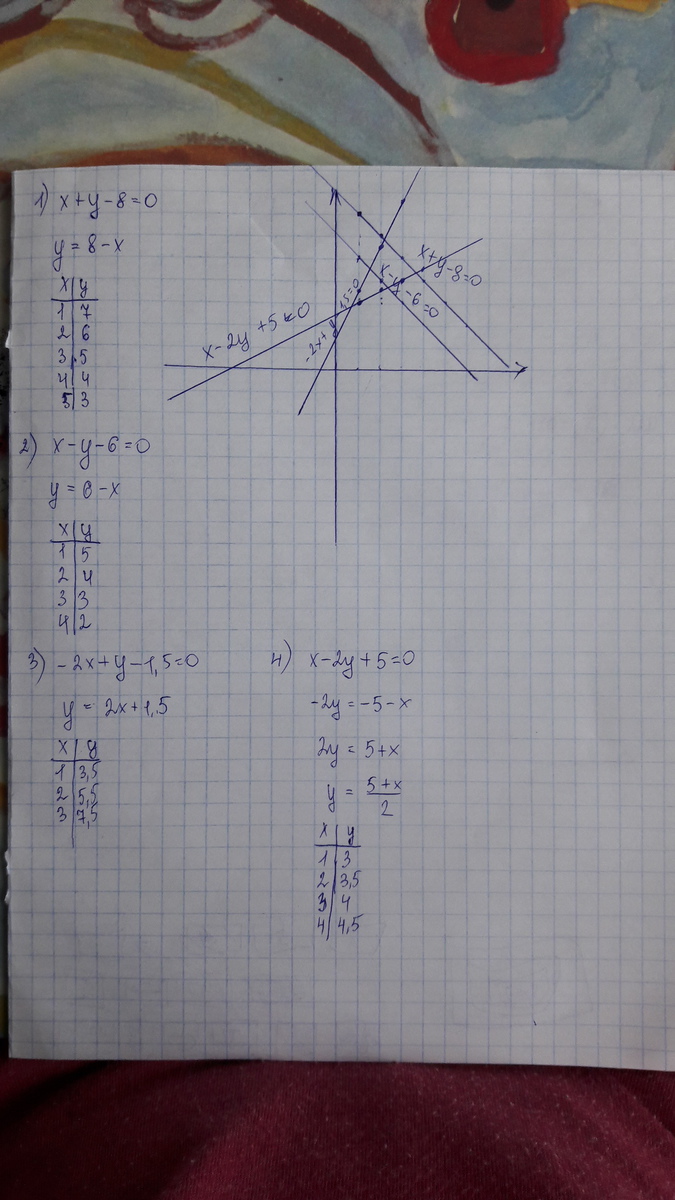 1) x+y-8=0
y = 8-x
x y
1 7
2 6
3 5
4 4
5 3
x+y-8=0
x-y-6=0
x-2y+5=0
2) x-y-6=0
y = 6-x
x y
1 5
2 4
3 3
4 2
3) -2x+y-1,5=0
y = 2x+1,5
x y
1 3,5
2 5,5
3 7,5
4) x-2y+5=0
-2y=-5-x
2y = 5+x
y = 5+x
2
x y
1 3
2 3,5
3 4
4 4,5